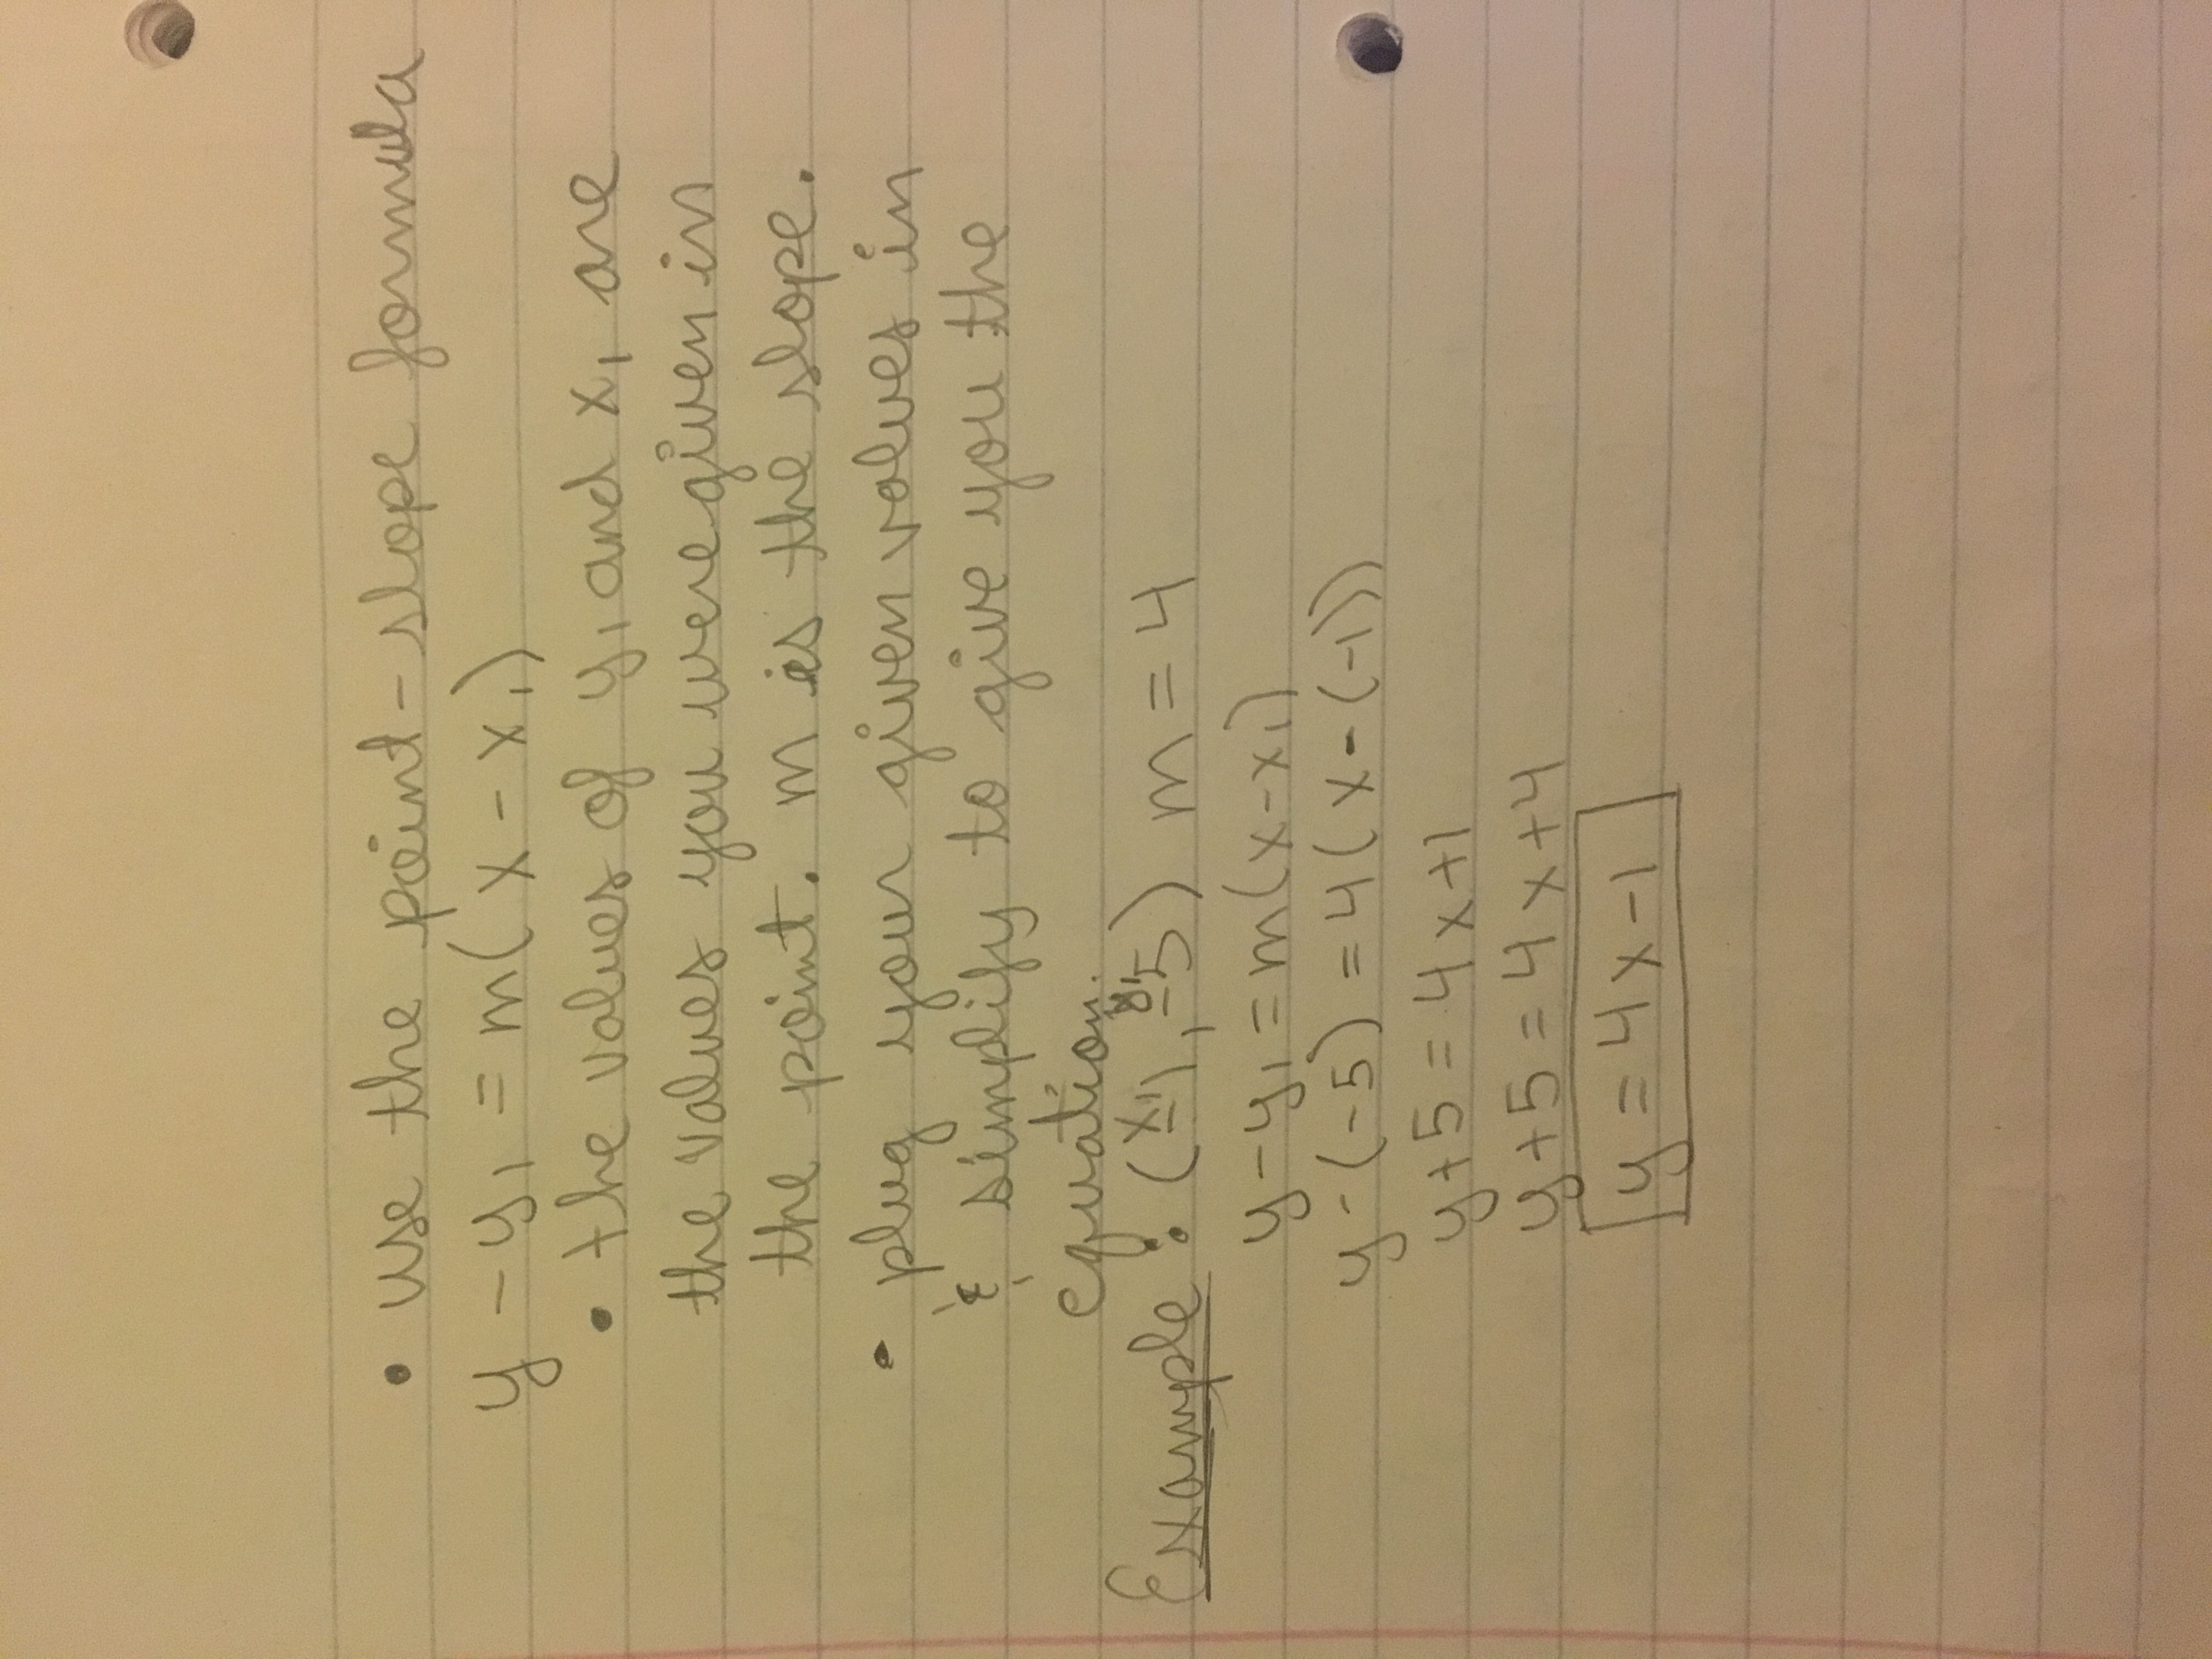 • use the point-slope formula
y - y₁ = m(x - x₁)
• the values of y₁ and x₁ are
the values you were given in
the point. m is the slope.
• plug your given values in
& simplify to give you the
equation.
x₁ y₁
Example: (-1, -5) m = 4
y - y₁ = m(x - x₁)
y - (-5) = 4(x - (-1))
y + 5 = 4x + 1
y + 5 = 4x + 4
y = 4x - 1